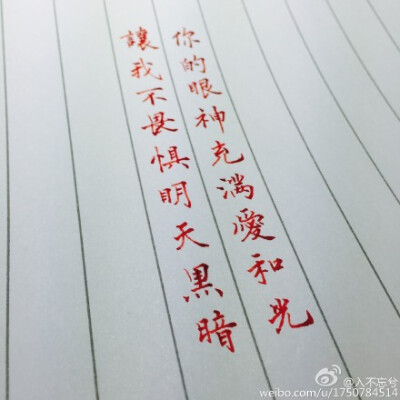 你的眼神充满愛和光
讓我不畏惧明天黑暗
@入不忘兮
weibo.com/u/1750784514